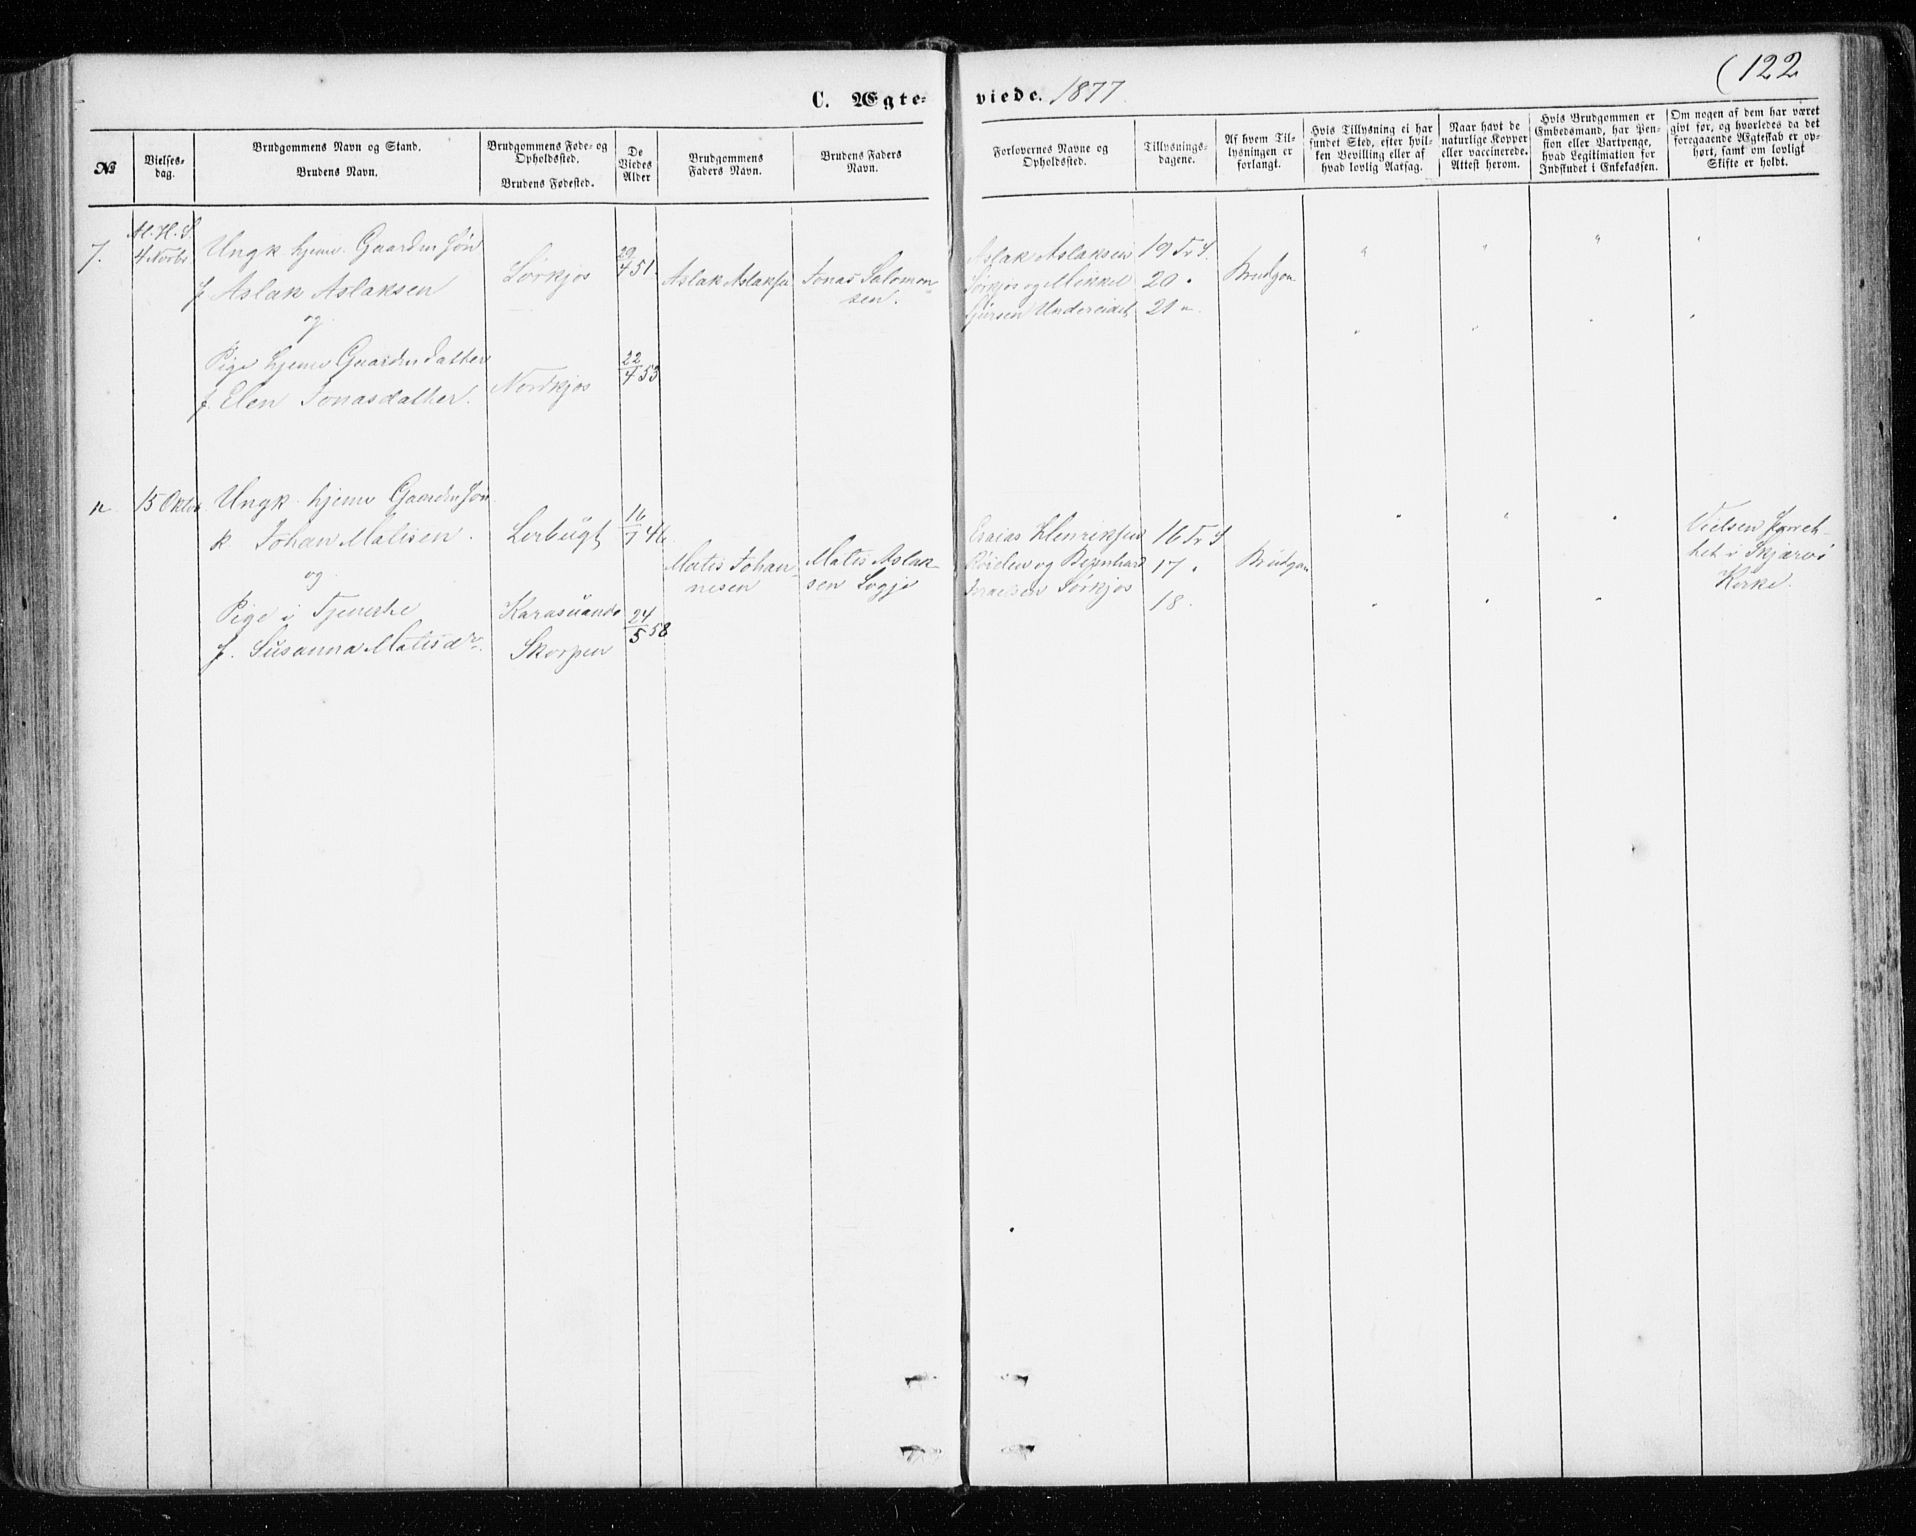 (122
C. Ægte-
viede. 1877.
No
Vielses-
dag.
Brudgommens Navn og Stand.
Brudens Navn.
Brudgommens Føde- og
Opholdssted.
Brudens Fødested.
De
Viedes
Alder
Brudgommens
Faders Navn.
Brudens Faders
Navn.
Forlovernes Navne og
Opholdssted.
Tillysnings-
dagene.
Af hvem Til-
lysningen er
forlangt.
Hvis Tillysning ei har
fundet Sted, efter hvil-
ken Bevilling eller af
hvad lovlig Aarsag.
Naar havt de
naturlige Kopper
eller vaccinerede.
Attest herom.
Hvis Brudgommen er
Embedsmand, har Pen-
sion eller Vartpenge,
hvad Legitimation for
Indskudet i Enkekassen.
Om nogen af dem har været
gift før, og hvorledes da det
foregaaende Ægteskab er op-
hørt, samt om lovligt
Skifte er holdt.
7.
Al. H. S.
4 Novbr
Ungk. hjem. Gaardm Søn
f Aslak Aslaksen
og
Pige hjem Gaardm Datter
f. Elen Jonasdatter.
Sørkjos
Nordkjos
29/4 51
22/4 53
Aslak Aslaksen
Jonas Salomon-
sen.
Aslak Aslaksen
Sørkjos og Mikkel
Undereidet
19 Tr S.
20 "
21 "
Brudgom
"
15 Oktbr
Ungk. hjem Gaardm Søn
k. Johan Matisen.
og
Pige i Tjeneste
f. Susanna Matisdr.
Lerbugt
Karasuando
Skorpen
16/7 46
24/5 58
Matis Johan-
nesen
Matis Aslak-
sen Sogjo
Esaias Henriksen
og Bernhard
Israelsen Sørkjos
16 Tr S
17 "
18.
Brudgom
Vielsen forret-
tet i Skjærvø
Kirke.